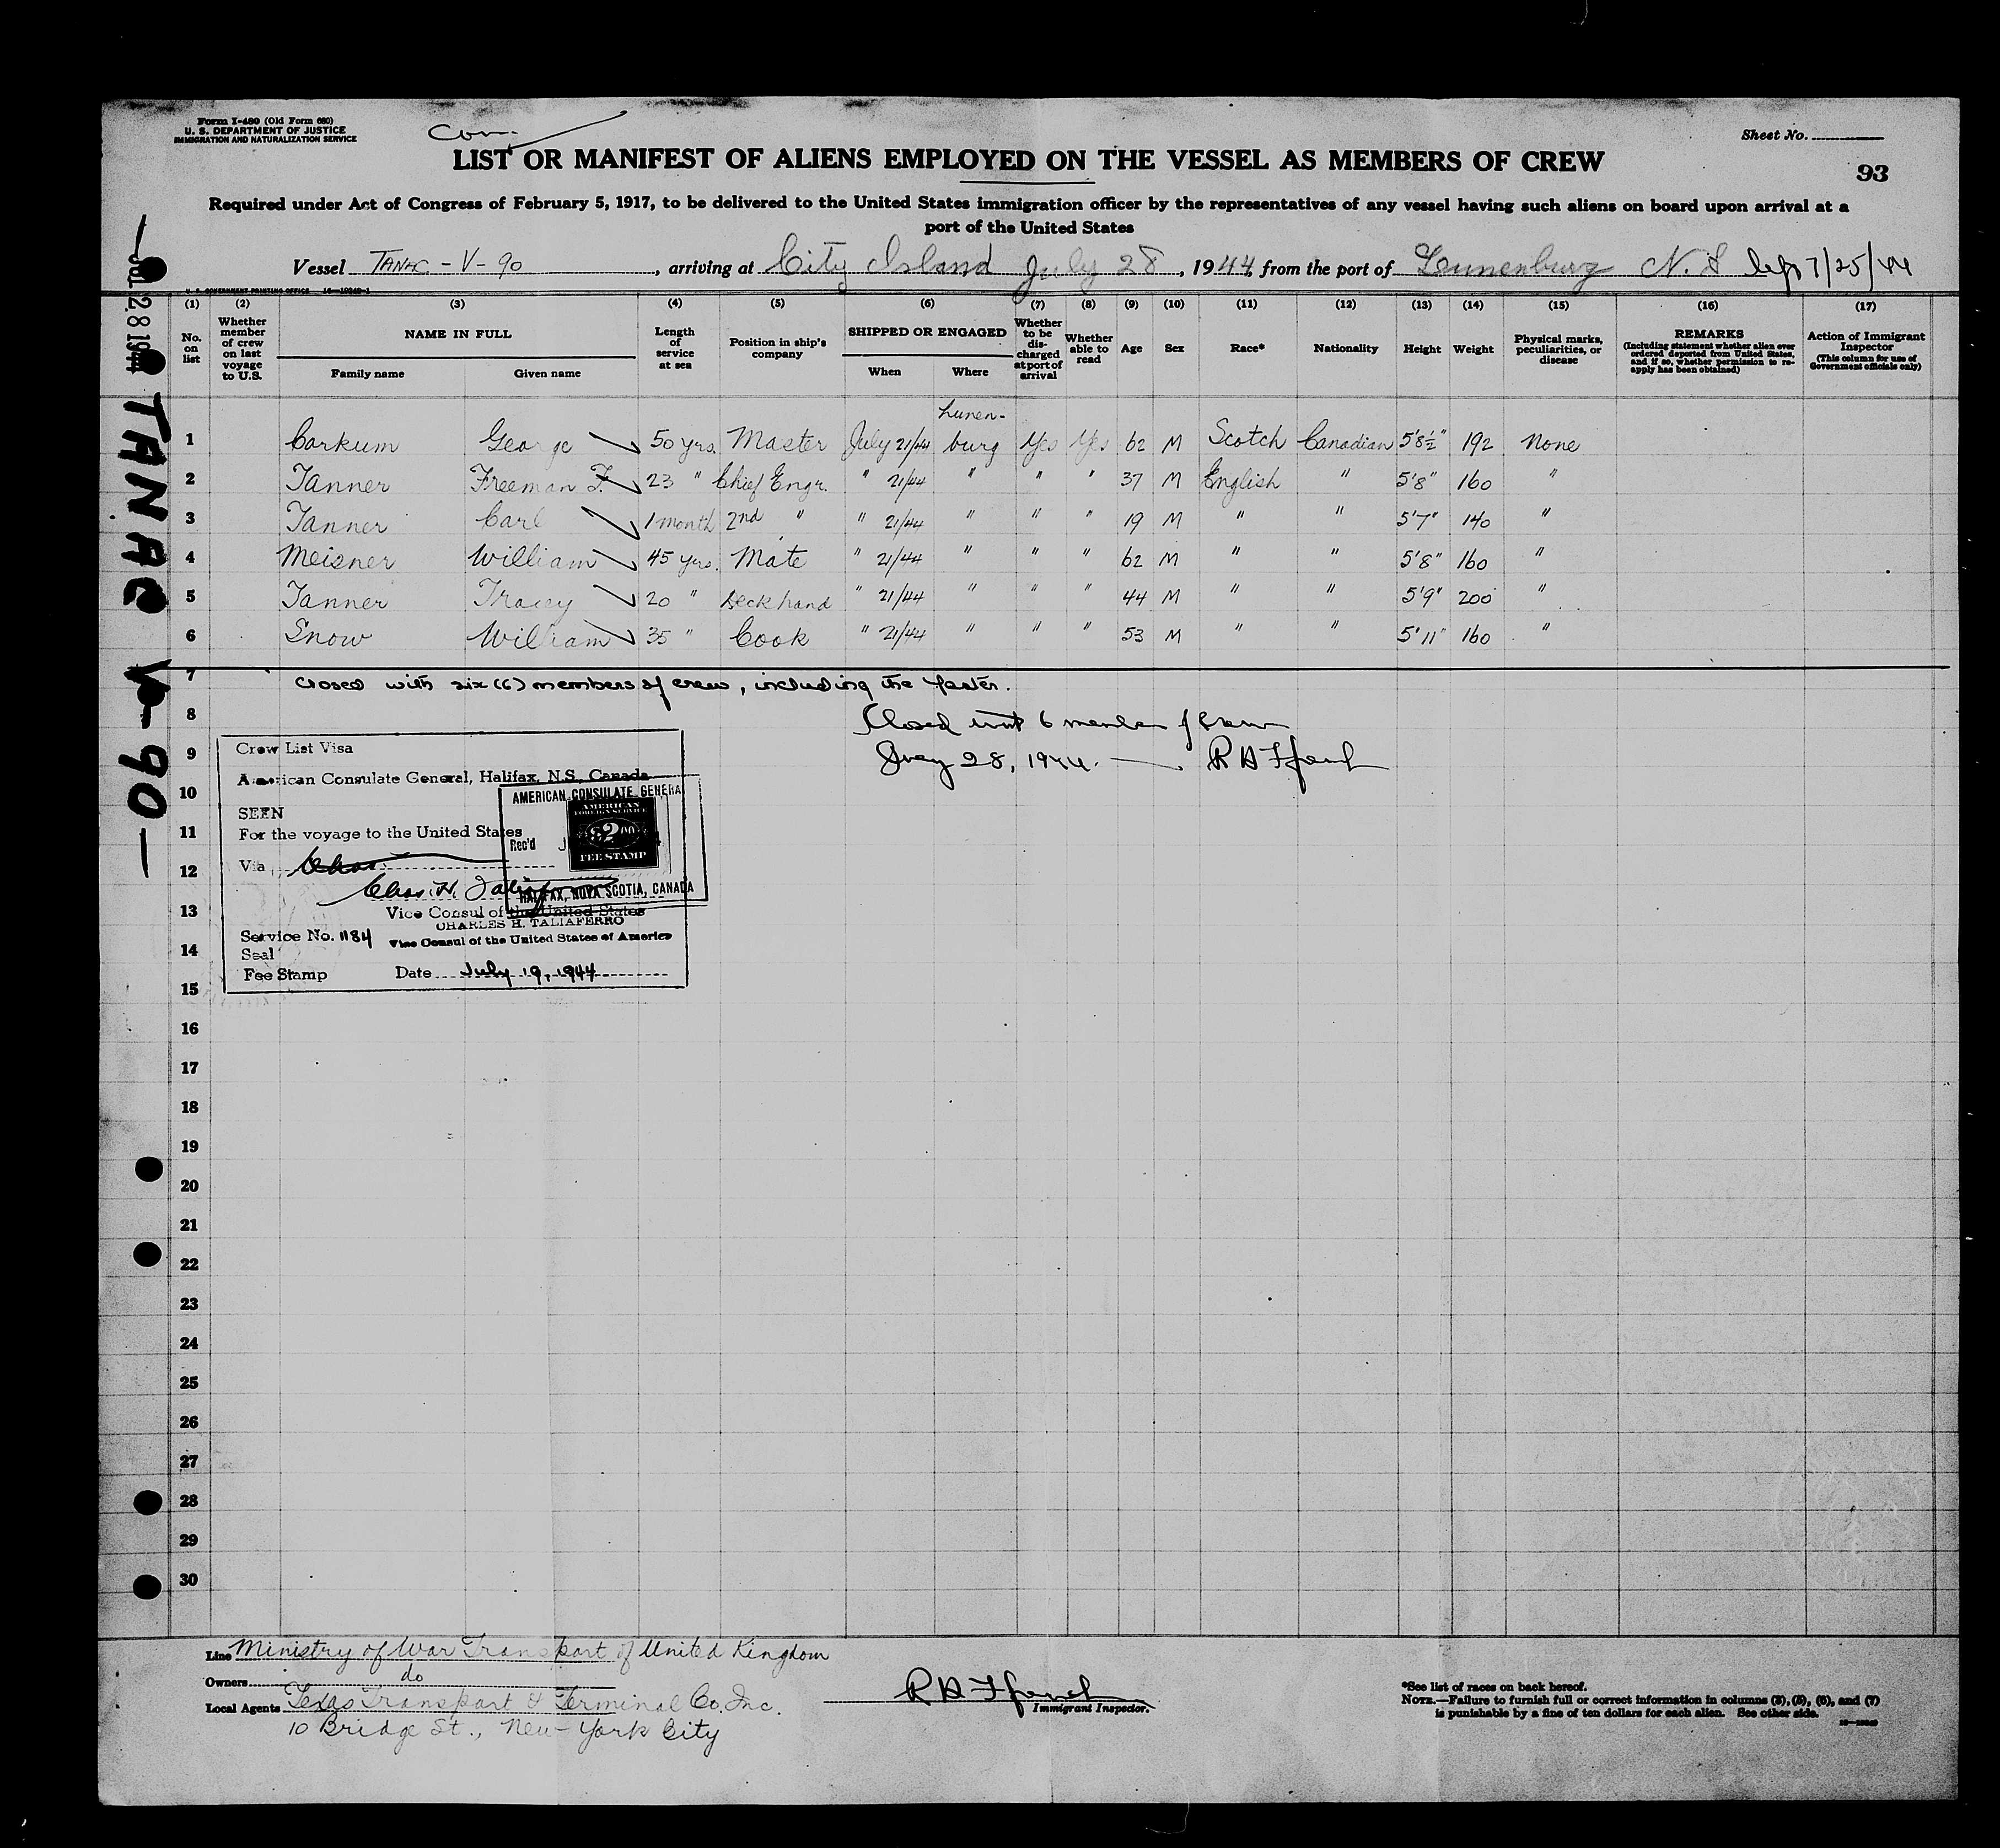 Form I-480 (Old Form 680)
U. S. DEPARTMENT OF JUSTICE
IMMIGRATION AND NATURALIZATION SERVICE
Com.
Sheet No.
LIST OR MANIFEST OF ALIENS EMPLOYED ON THE VESSEL AS MEMBERS OF CREW
93
Required under Act of Congress of February 5, 1917, to be delivered to the United States immigration officer by the representatives of any vessel having such aliens on board upon arrival at a
port of the United States
Vessel TANAC - V - 90, arriving at City Island July 28, 1944, from the port of Lunenburg N.S 7/25/44
U. S. GOVERNMENT PRINTING OFFICE 16-10349-1
JUL 28 1944 TANAC V-90-
(1) (2) (3) (4) (5) (6) (7) (8) (9) (10) (11) (12) (13) (14) (15) (16) (17)
No. on list
Whether member of crew on last voyage to U.S.
NAME IN FULL
Family name
Given name
Length of service at sea
Position in ship's company
SHIPPED OR ENGAGED
When
Where
Whether to be discharged at port of arrival
Whether able to read
Age
Sex
Race*
Nationality
Height
Weight
Physical marks, peculiarities, or disease
REMARKS
(Including statement whether alien ever ordered deported from United States, and if so, whether permission to reapply has been obtained)
Action of Immigrant Inspector
(This column for use of Government officials only)
1 Corkum George 50 yrs. Master July 21/44 Lunenburg Yes Yes 62 M Scotch Canadian 5'8½" 192 None
2 Tanner Freeman F. 23 " Chief Engr. " 21/44 " " " 37 M English " 5'8" 160 "
3 Tanner Carl 1 month 2nd " " 21/44 " " " 19 M " " 5'7" 140 "
4 Meisner William 45 yrs. Mate " 21/44 " " " 62 M " " 5'8" 160 "
5 Tanner Tracey 20 " Deckhand " 21/44 " " " 44 M " " 5'9" 200 "
6 Snow William 35 " Cook " 21/44 " " " 53 M " " 5'11" 160 "
7
Closed with six (6) members of crew, including the Master.
8
Closed with 6 members of crew
9
July 28, 1944. R
10
11
12
13
14
15
16
17
18
19
20
21
22
23
24
25
26
27
28
29
30
Crew List Visa
American Consulate General, Halifax, N.S., Canada
SEEN
For the voyage to the United States
Via Chas.
Chas. H. Taliaferro
Vice Consul of the United States
CHARLES H. TALIAFERRO
Vice Consul of the United States of America
Service No. 1184
Seal
Fee Stamp Date July 19, 1944
AMERICAN CONSULATE GENERAL
Rec'd
AMERICAN FOREIGN SERVICE
$2.00
FEE STAMP
HALIFAX, NOVA SCOTIA, CANADA
Line Ministry of War Transport of United Kingdom
Owners do
Local Agents Texas Transport & Terminal Co. Inc.
10 Bridge St., New-York City
Immigrant Inspector.
*See list of races on back hereof.
NOTE.—Failure to furnish full or correct information in columns (3), (5), (6), and (7)
is punishable by a fine of ten dollars for each alien. See other side.